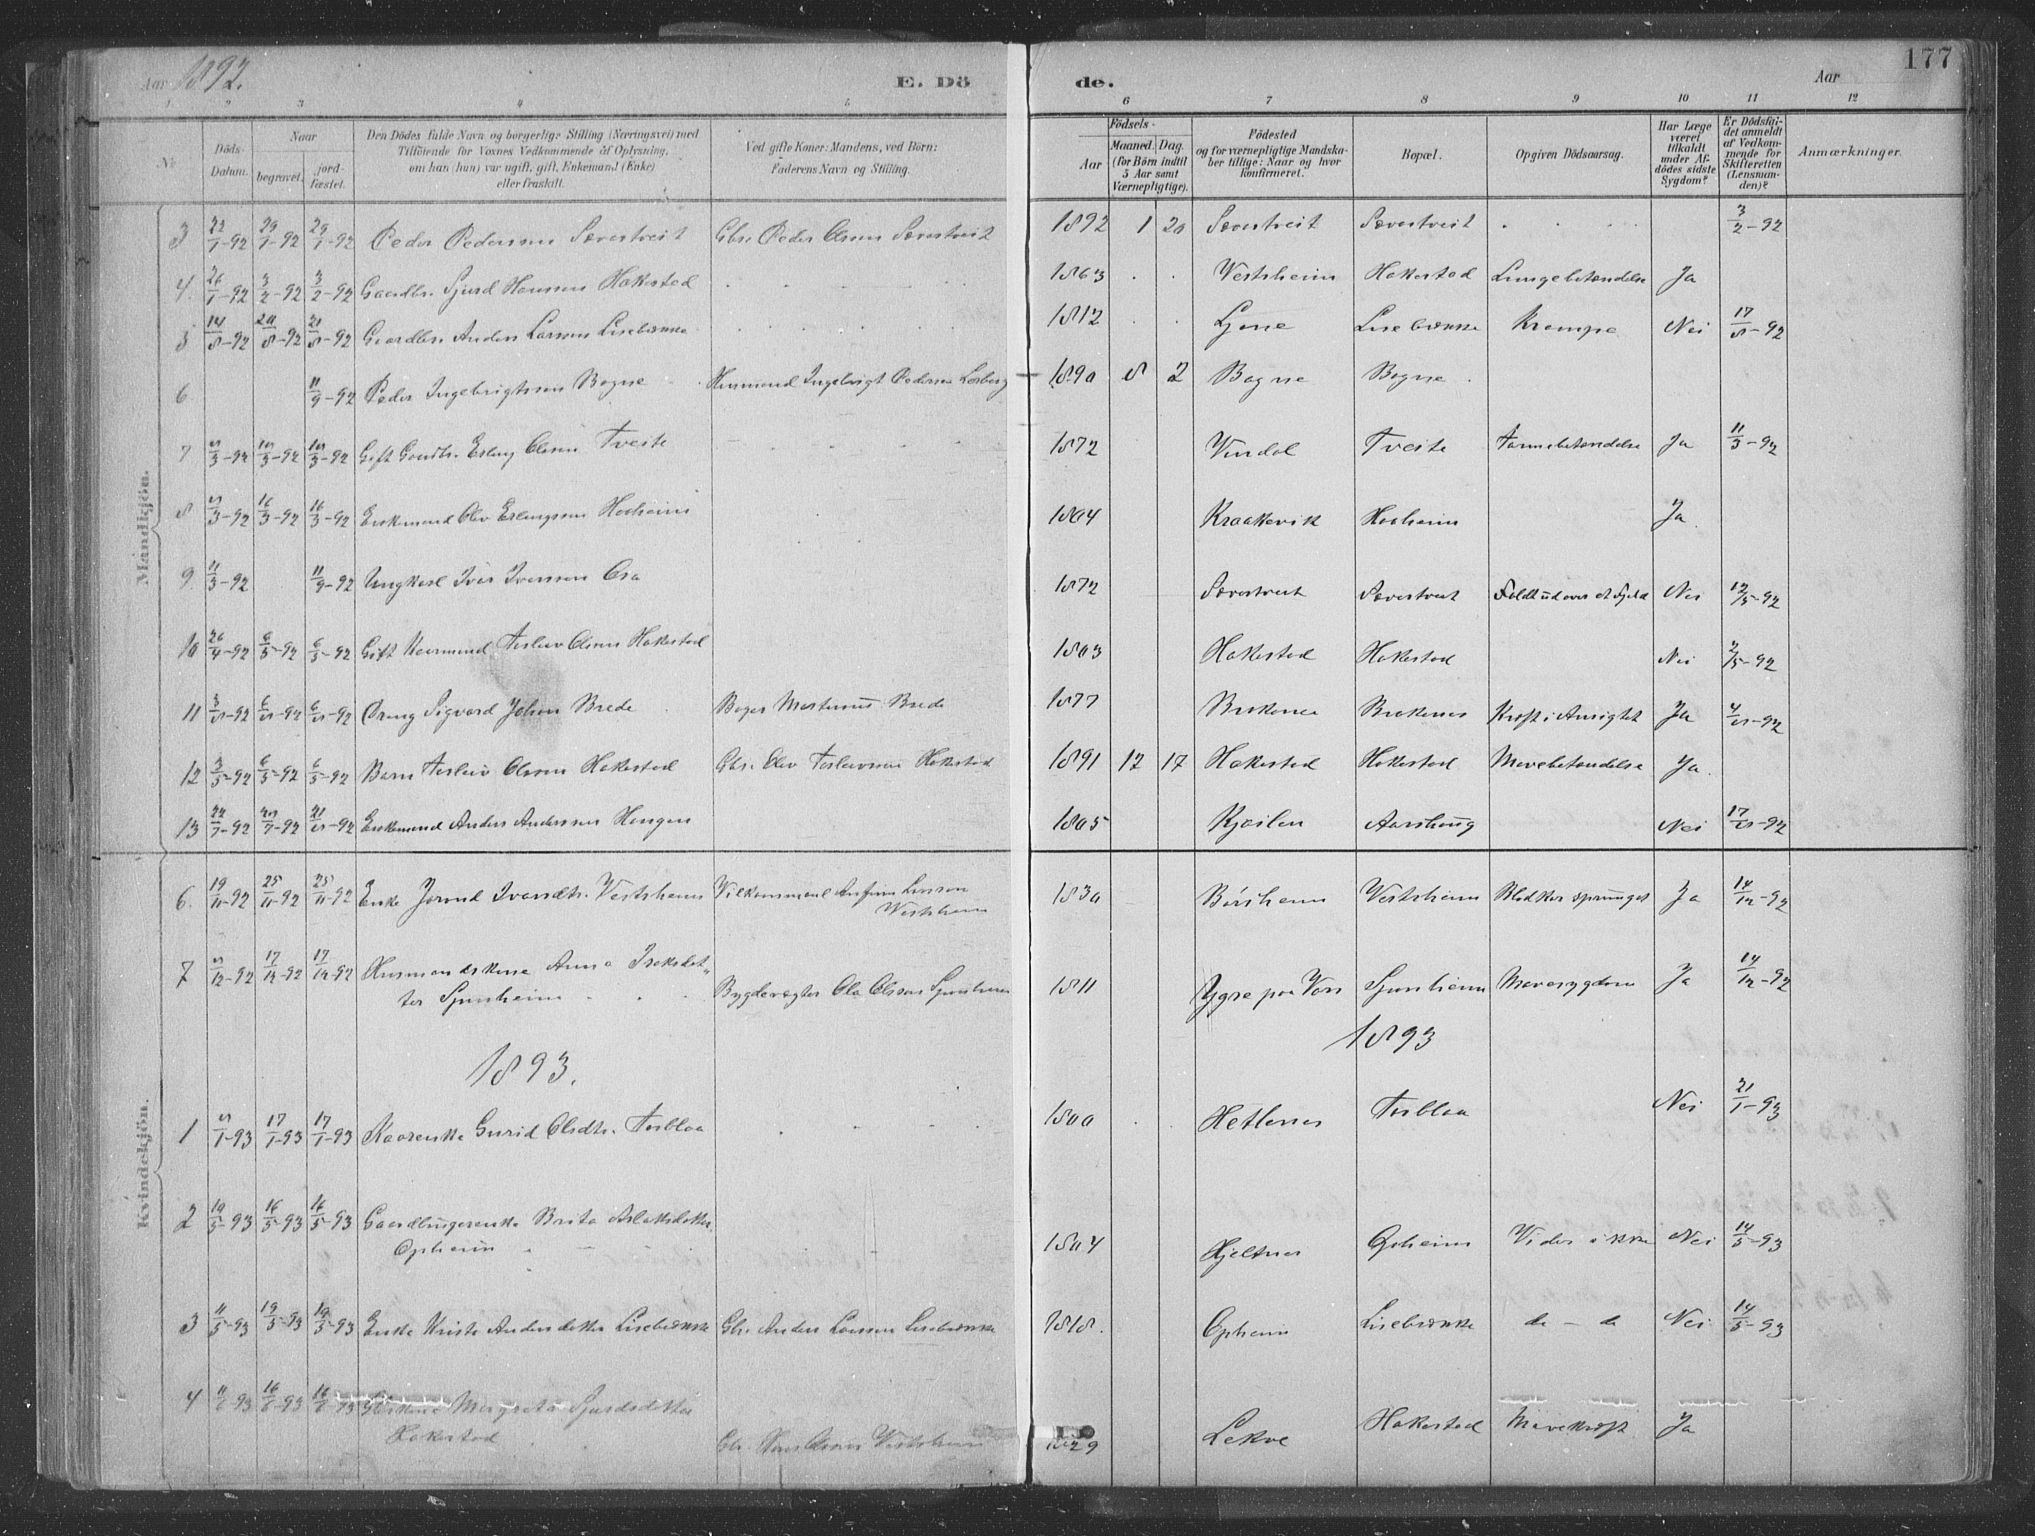 Aar 1892.
E. Dö
de.
Aar
177
1 2 3 4 5 6 7 8 9 10 11 12
No
Döds-Datum.
Naar
begravet.
jord-fæstet.
Den Dödes fulde Navn og borgerlige Stilling (Næringsvei) med
Tilföiende for Voxnes Vedkommende af Oplysning,
om han (hun) var ugift, gift, Enkemand (Enke)
eller fraskilt.
Ved gifte Koner: Mandens, ved Börn:
Faderens Navn og Stilling.
Födsels-
Aar
Maaned. Dag.
(for Börn indtil
5 Aar samt
Værnepligtige).
Födested
og for værnepligtige Mandska-
ber tillige: Naar og hvor
konfirmeret.
Bopæl.
Opgiven Dödsaarsag.
Har Læge
været
tilkaldt
under Af-
dödes sidste
Sygdom?
Er Dödsfal-
det anmeldt
af Vedkom-
mende for
Skifteretten
(Lensman-
den)?
Anmærkninger.
Mandkjön.
3 22/1-92 29/1-92 29/1-92 Peder Pedersen Sævartveit Gbr. Peder Olsen Sævartveit 1892 1 20 Sævartveit Sævartveit 3/2-92
4. 26/1-92 3/2-92 3/2-92 Gaardbr. Sjurd Hansen Hakestad 1863 Vestrheim Hakestad Lungebetændelse Ja
5 14/8-92 20/8-92 21/8-92 Gaardbr. Anders Larsen Lisebrække 1812 Ljone Lisebrække Krampe Nei 17/8-92
6 11/9-92 Peder Ingebrigtsen Bagne Husmand Ingebrigt Pedersen 1890 8 2 Bagne Bagne
7 5/3-92 10/3-92 10/3-92 Gift Gaardbr. Erling Olsen Tveite 1872 Vindal Tveite Tarmebetændelse Ja 11/3-92
8 5/3-92 16/3-92 16/3-92 Enkemand Olav Erlingsen Haaheim 1804 Kraakevik Haaheim Ja
9 11/3-92 11/9-92 Ungkarl Iver Iversen Osa 1872 Sævartveit Sævartveit Faldt ud over et Fjeld Nei 12/5-92
10 26/4-92 6/5-92 6/5-92 Gift Kaarmand Torleiv Olsen Hakestad 1803 Hakestad Hakestad Nei 2/5-92
11 3/8-92 6/8-92 6/8-92 Dreng Sigvard Johan Brede Bager Martinus Brede 1877 Brakenes Brakenes Kræft i Ansigtet Ja 4/8-92
12 3/5-92 6/5-92 6/5-92 Barn Torleiv Olsen Hakestad Gbr. Olav Torleivsen Hakestad 1891 12 17 Hakestad Hakestad Mavebetændelse Ja.
13 22/7-92 29/7-92 21/8-92 Enkemand Anders Andersen Haugen 1805 Kjærland Aarhoug Nei 17/8-92
Kvindekjön.
6. 19/11-92 25/11-92 25/11-92 Enke Jorand Ivarsdtr. Vestrheim Vilkaarsmand Arnfinn Larsen
Vestrheim 1830 Børsheim Vestrheim Blodkar sprunget Ja 14/12-92
7 5/12-92 17/12-92 17/12-92 Husmandskone Anna Isaksdat-
ter Spaanheim Bygdevægter Ola Olsen Spaanheim 1811 Ygre paa Vors Spaanheim Mavesygdom Ja 14/12-92
1893.
1893
1 5/1-93 17/1-93 17/1-93 Kaarenke Gurid Olsdtr. Torblaa 1800 Hetlenes Torblaa Nei 21/1-93
2 10/5-93 16/5-93 16/5-93 Gaardbrugerenke Brita Aslaksdatter
Opheim 1804 Hjeltnes Opheim Vides ikke Nei 14/5-93
3 11/5-93 19/5-93 19/5-93 Enke Kristi Andersdatter Lisebrække Gbr. Anders Larsen Lisebrække 1818. Opheim Lisebrække do - do Nei 14/5-93
4 11/6-93 16/6-93 16/6-93 Gbrkone Margreta Sjursdatter
Hakestad Gbr. Hans Olsen Vestrheim 1829 Lekve Hakestad Mavekræft Ja